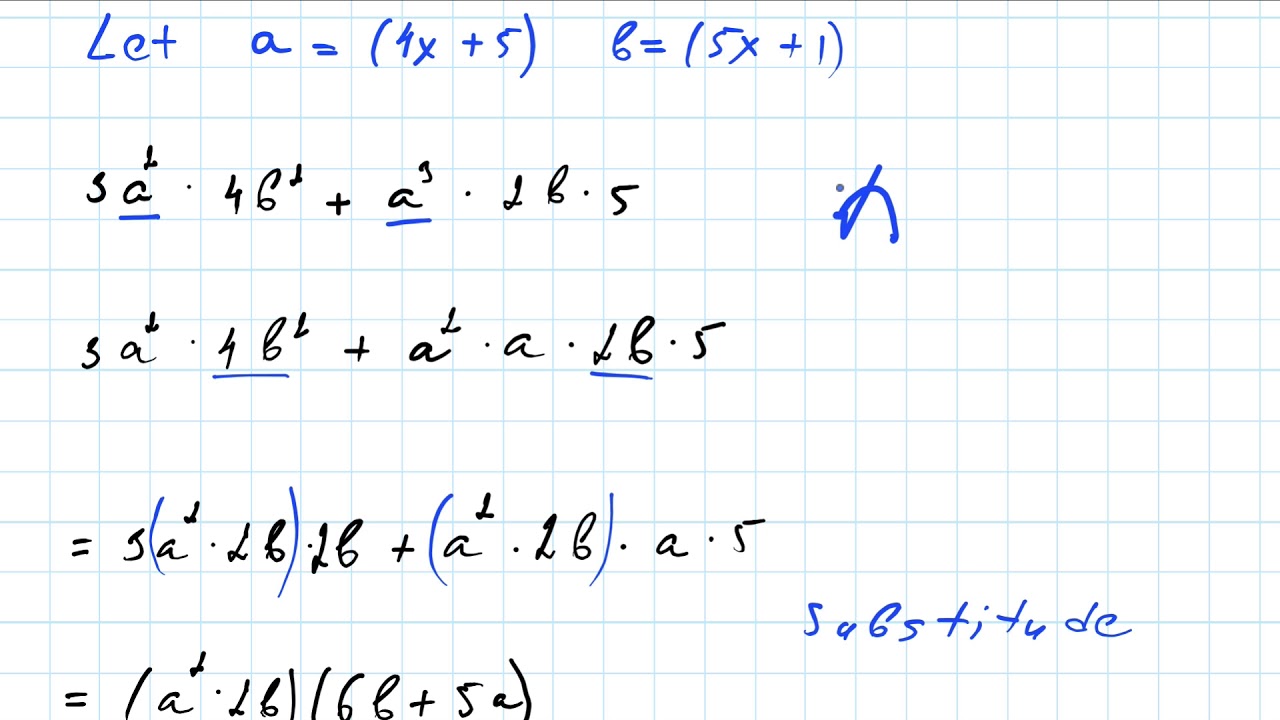 Let a = (4x + 5) b = (5x + 1)
3a² · 4b² + a³ · 2b · 5
3a² · 4b² + a² · a · 2b · 5
= 3(a² · 2b) · 2b + (a² · 2b) · a · 5
substitude
= (a² · 2b)(6b + 5a)